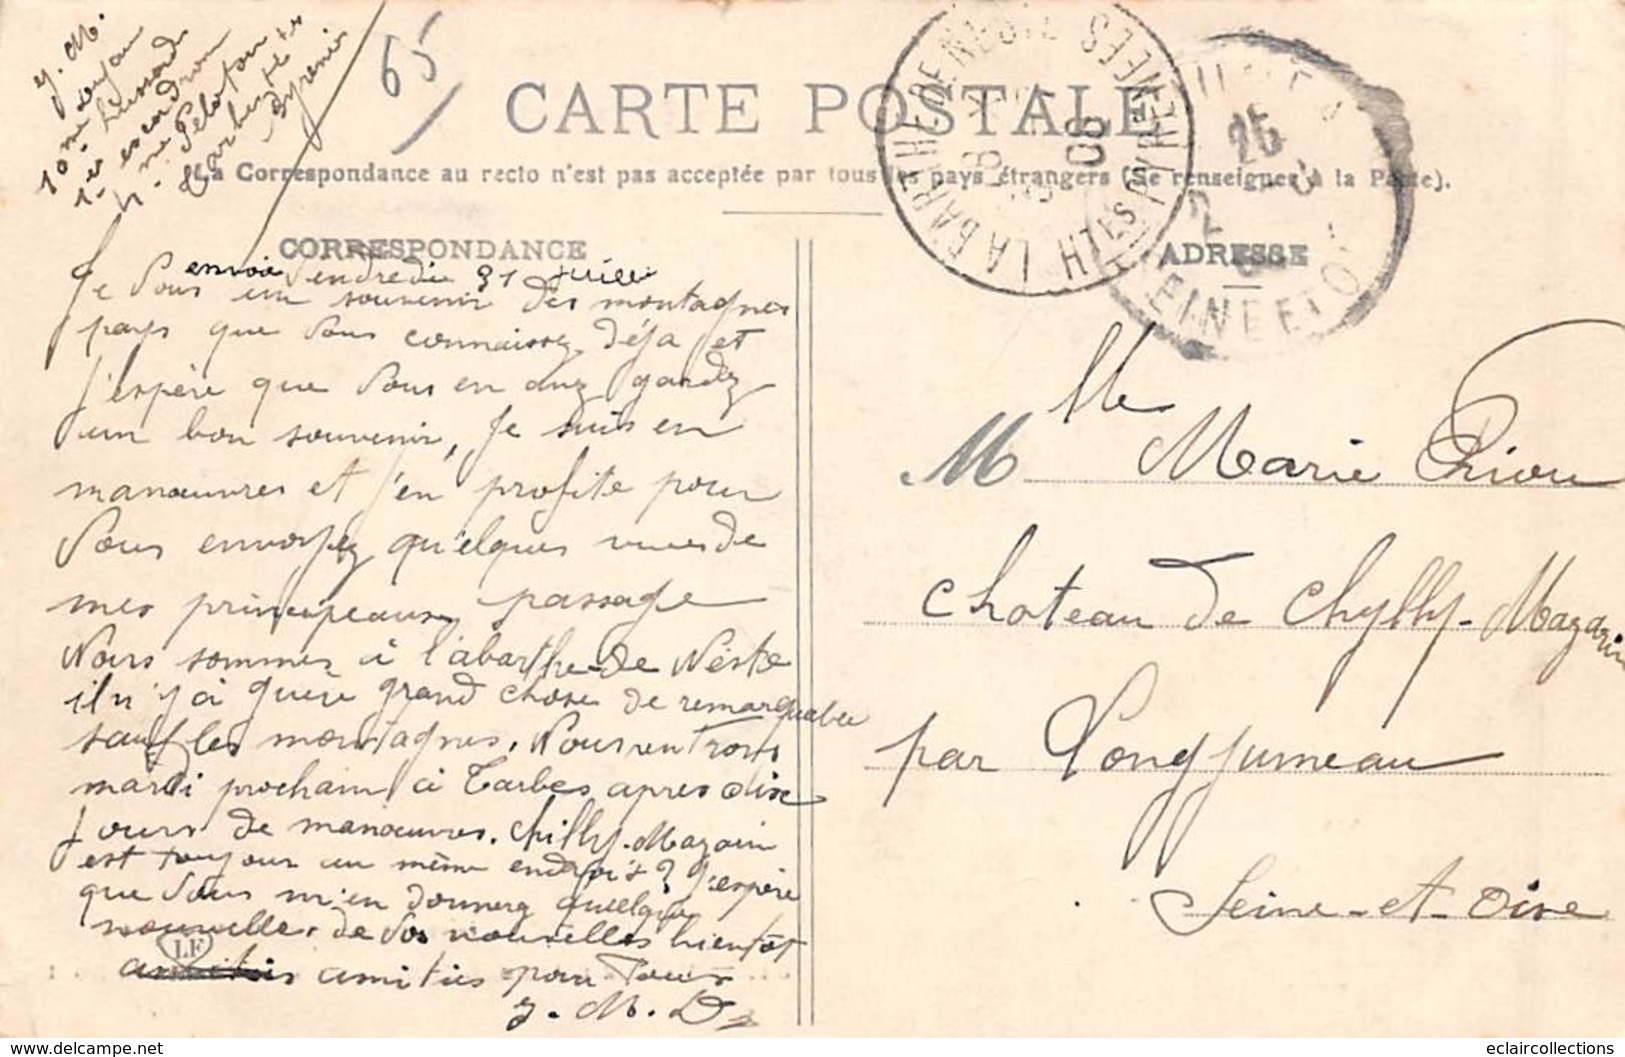 J. M.
10me Hussards
1er escadron
4me Peloton
Tarbes Htes
Pyrenés
65
CARTE POSTALE
La Correspondance au recto n'est pas acceptée par tous les pays étrangers (Se renseigner à la Poste).
CORRESPONDANCE
ADRESSE
LABARTHE DE NESTE
HTES PYRENEES
08
25
SEINE ET OISE
Vendredi 31 Juillet
Je Vous envoie un souvenir des montagnes
pays que Vous connaissez déja et
j'espère que Vous en gardez
un bon souvenir, Je suis en
manœuvres et j'en profite pour
Vous envoyez quelques vues de
mes principeaux passage
Nous sommes à l'abarthe-de Neste
il n'y à guère grand chose de remarquable
sauf les montagnes. Nous rentrons
mardi prochain à Tarbes apres dix
jours de manœuvres. Chilly-Mazarin
est toujour au même endroit ? J'espère
que Vous m'en donnerez quelque
nouvelles de Vos nouvelles bientôt
amitiés pour Tous
J. M. D
LF
Mlle
M Marie Priou
Chateau de Chylly-Mazarin
par Longjumeau
Seine-et-Oise
www.delcampe.net
eclaircollections